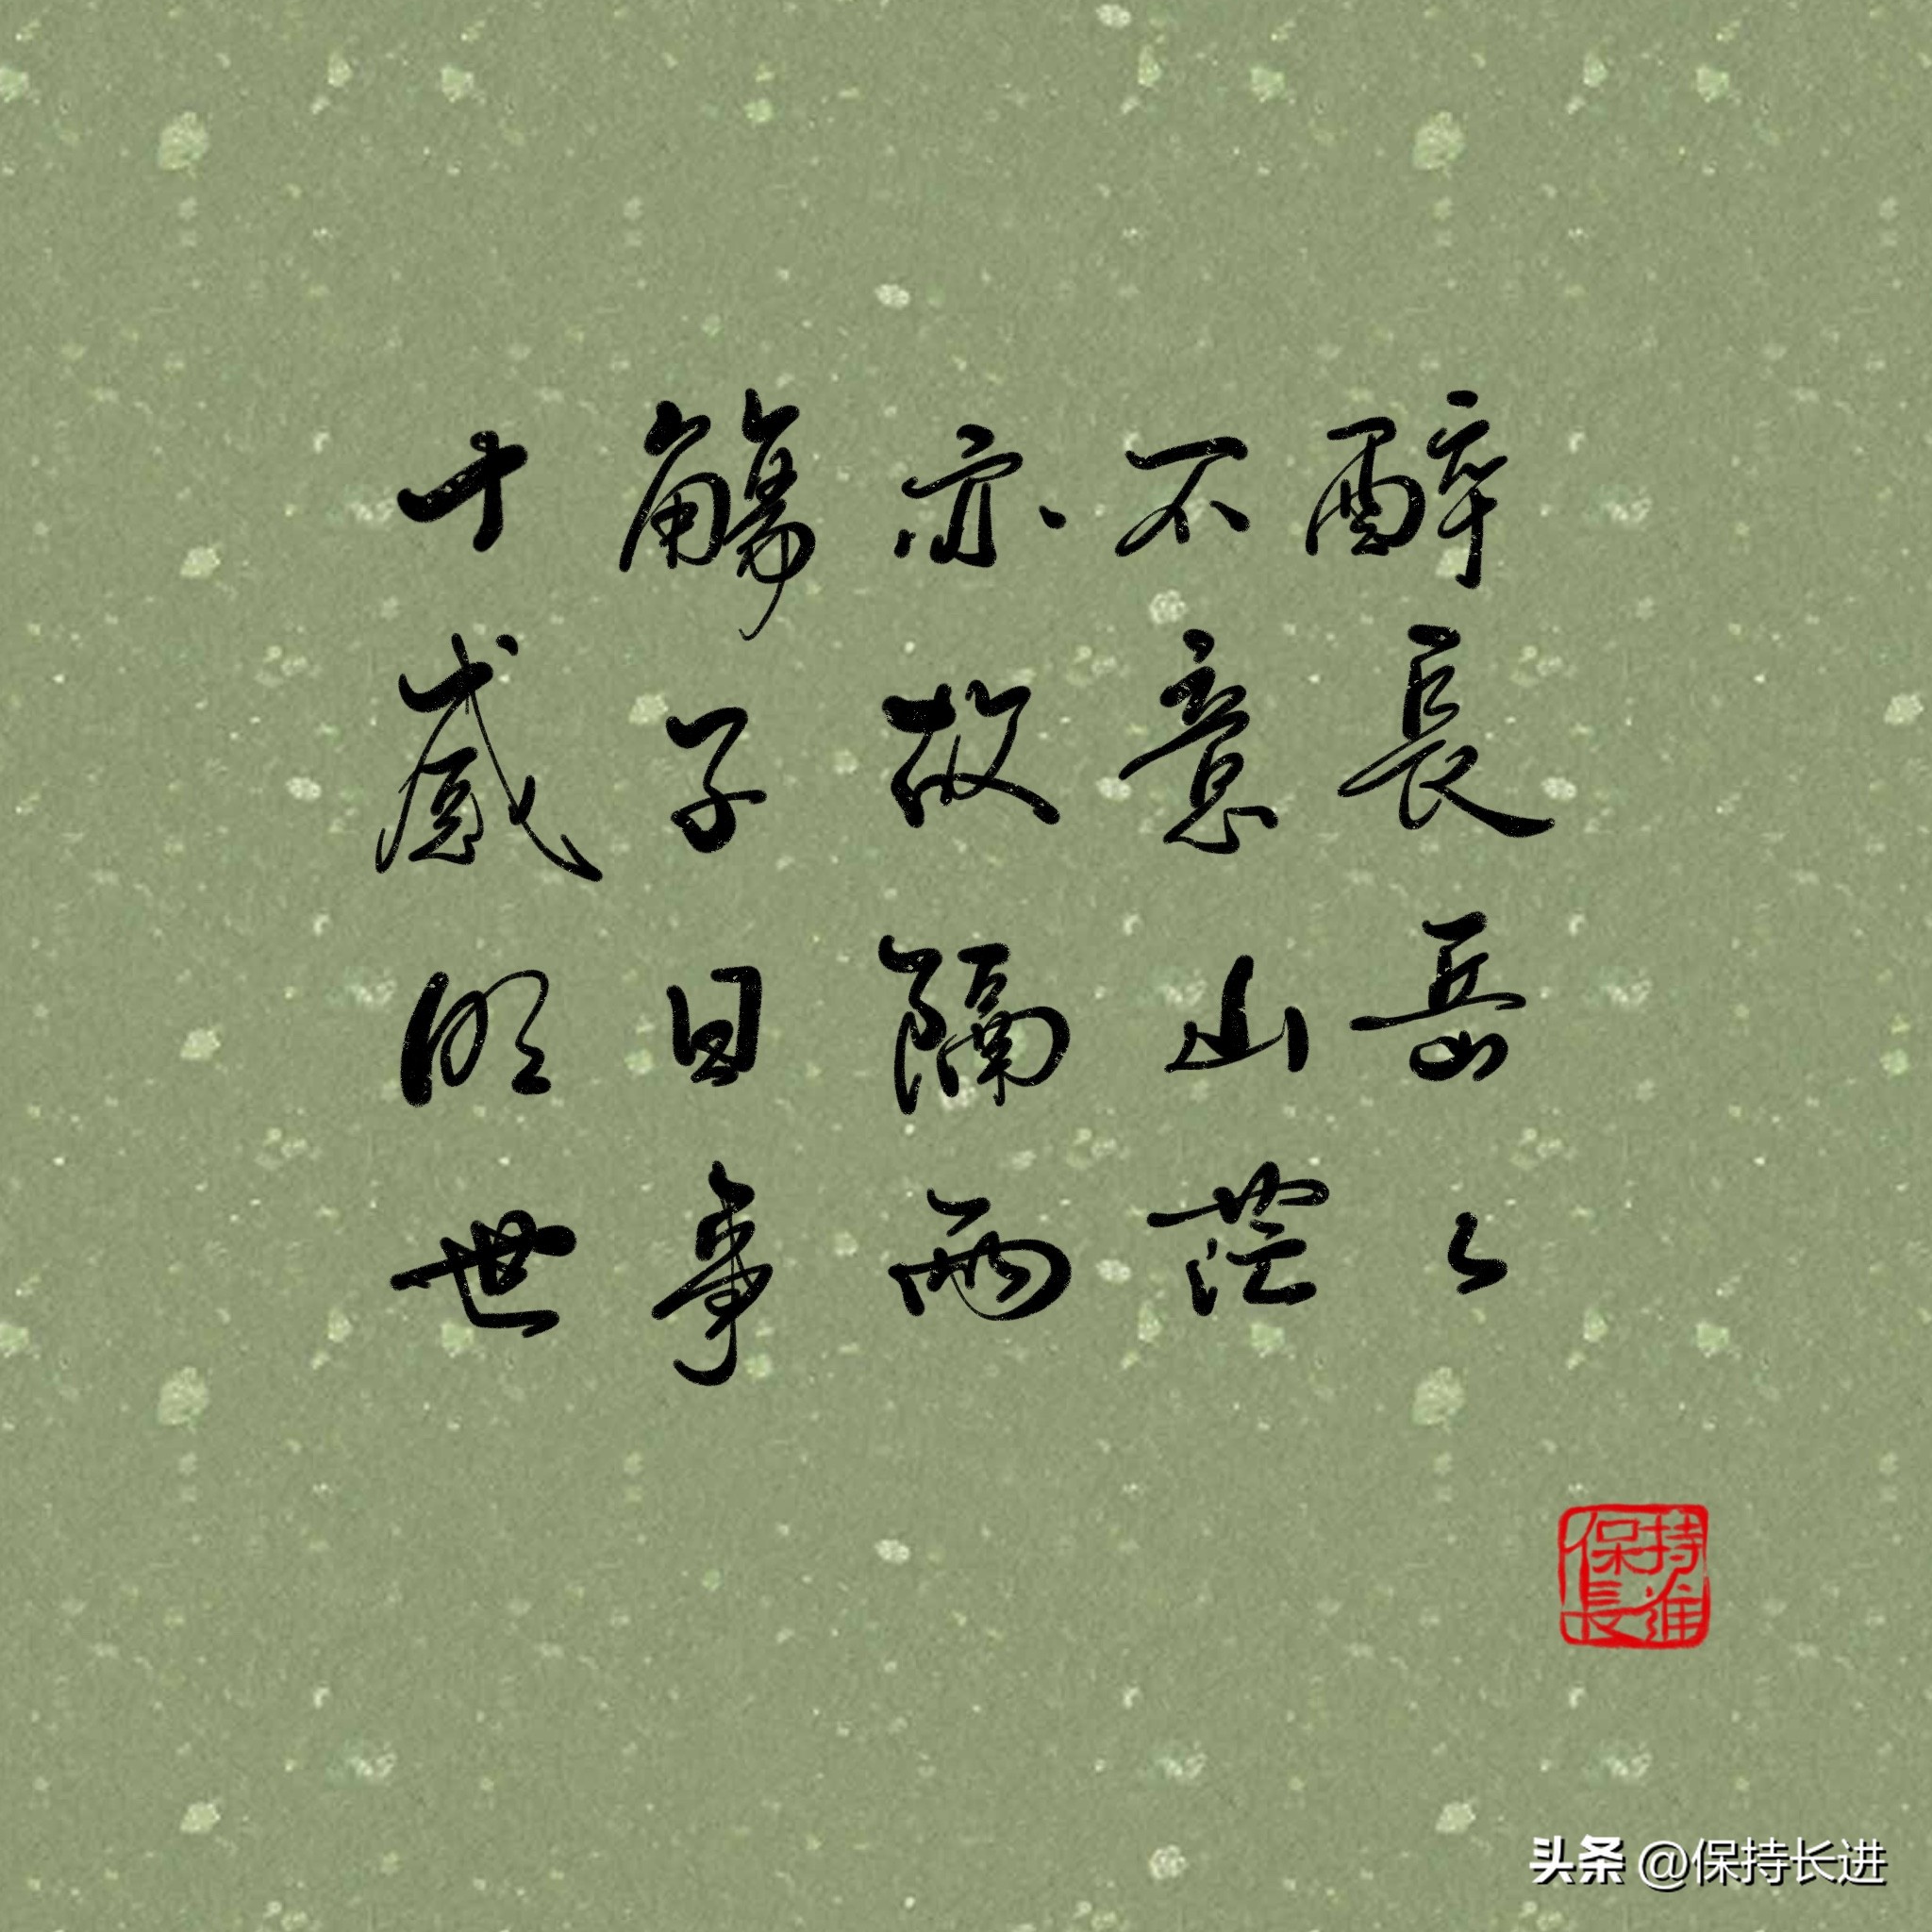 十觴亦不醉
感子故意長
明日隔山岳
世事兩茫々
保持
長進
头条 @保持长进